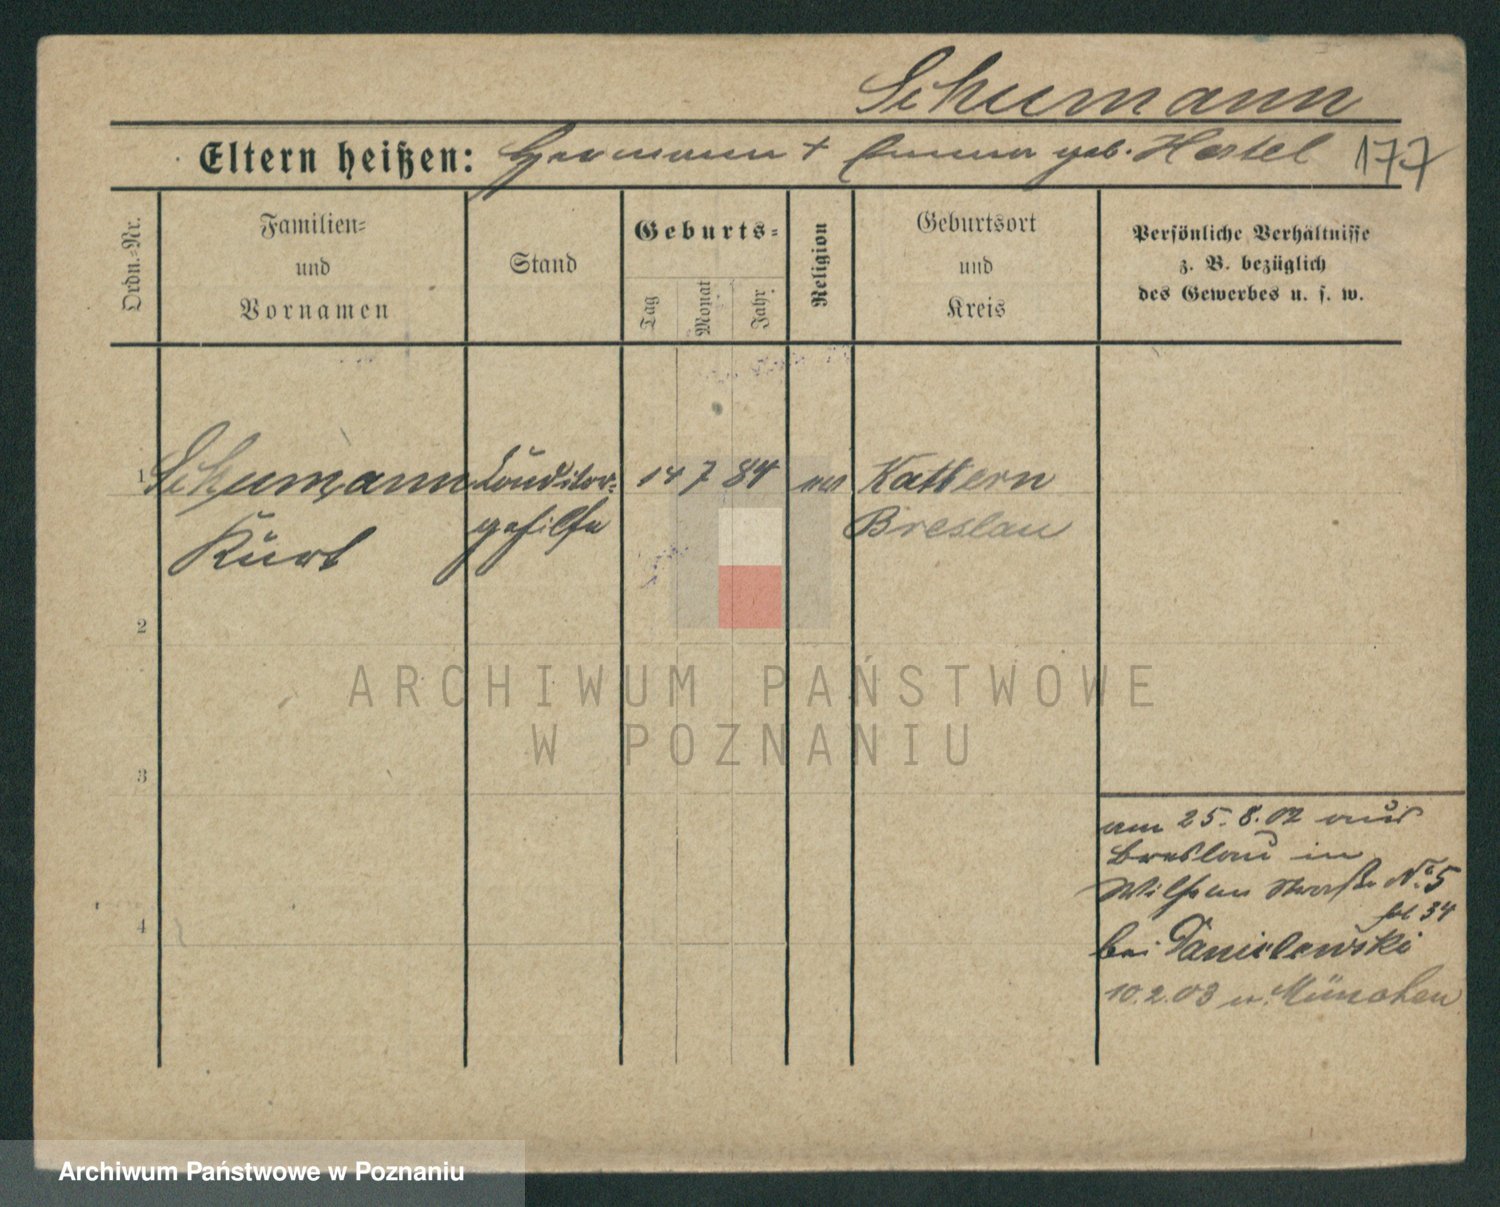 Schumann
Eltern heißen: Hermann + Emma geb. Hertel 177
Ordn.=Nr.
Familien=
und
Vornamen
Stand
Geburts=
Tag
Monat
Jahr
Religion
Geburtsort
und
Kreis
Persönliche Verhältnisse
z. B. bezüglich
des Gewerbes u. s. w.
1 Schumann Conditor= 14 7 84 ev Kattern
Kurt gehilfe Breslau
2
3
4
am 25.8.02 aus
Breslau in
Wilhelm Straße No. 5
fol 34
bei Danielewski
10.2.03 n. München
ARCHIWUM PAŃSTWOWE
W POZNANIU
Archiwum Państwowe w Poznaniu